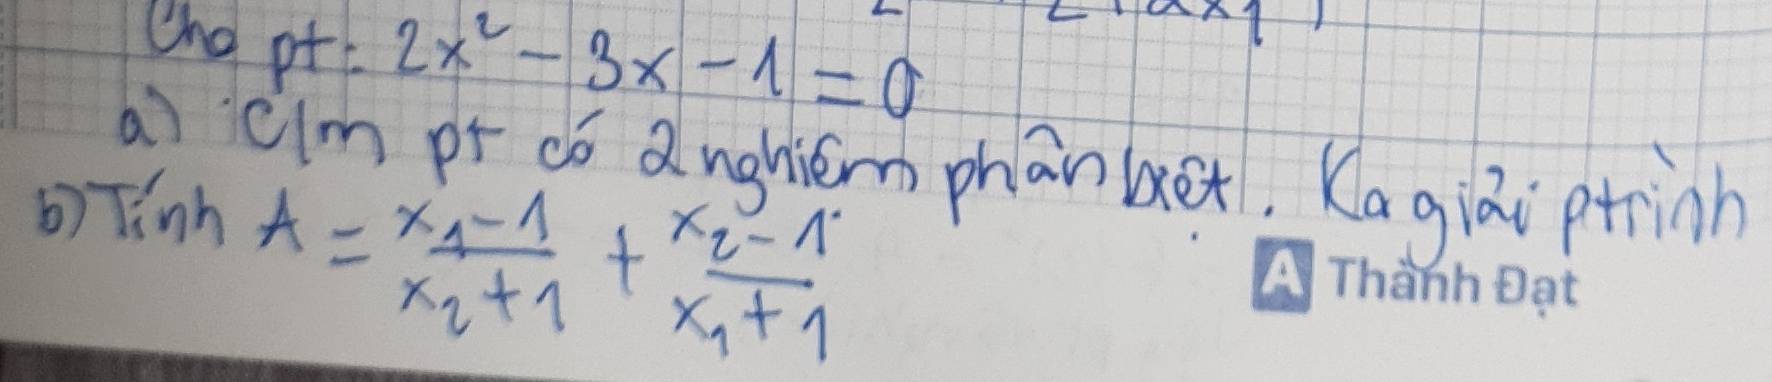 Cho pt: 2x² - 3x - 1 = 0
a) C/m pt có 2 nghiệm phân biệt. Ko giải ptrình
b) Tính A = \frac{x_1 - 1}{x_2 + 1} + \frac{x_2 - 1}{x_1 + 1}
A Thành Đạt